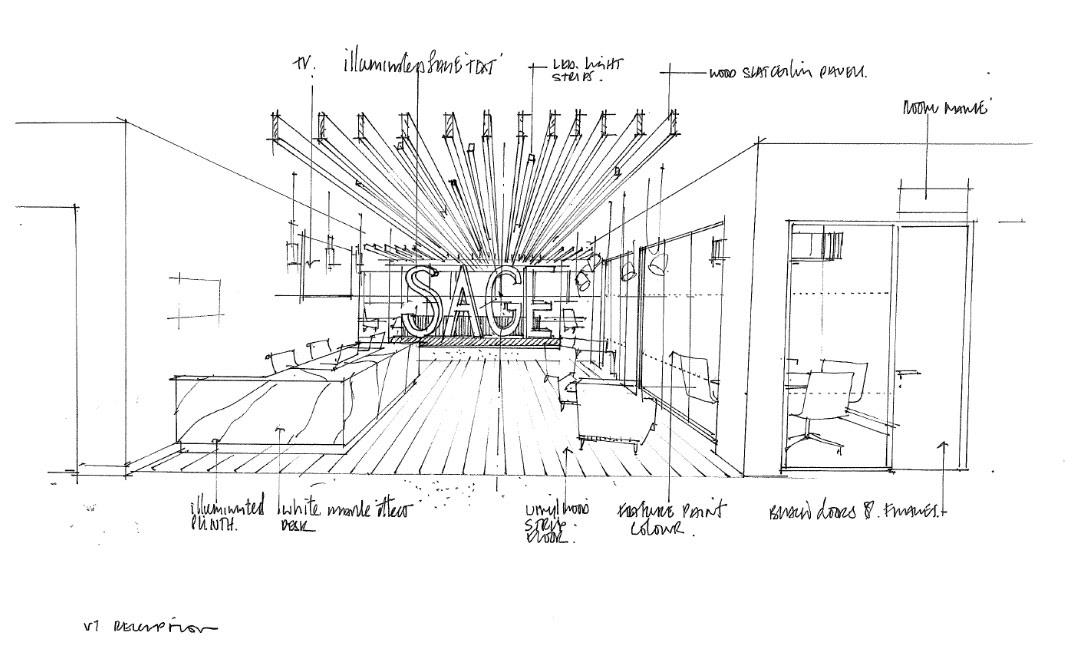 TV.
illuminated SAGE 'TEXT'
LED. LIGHT
STRIPS.
WOOD SLAT CEILING PANELS.
ROOM NAME'
SAGE
illuminated
PLINTH.
white marble effect
DESK
VINYL WOOD
STRIP
FLOOR.
FEATURE PAINT
COLOUR.
BLACK DOORS & FRAMES.
V1 RECEPTION